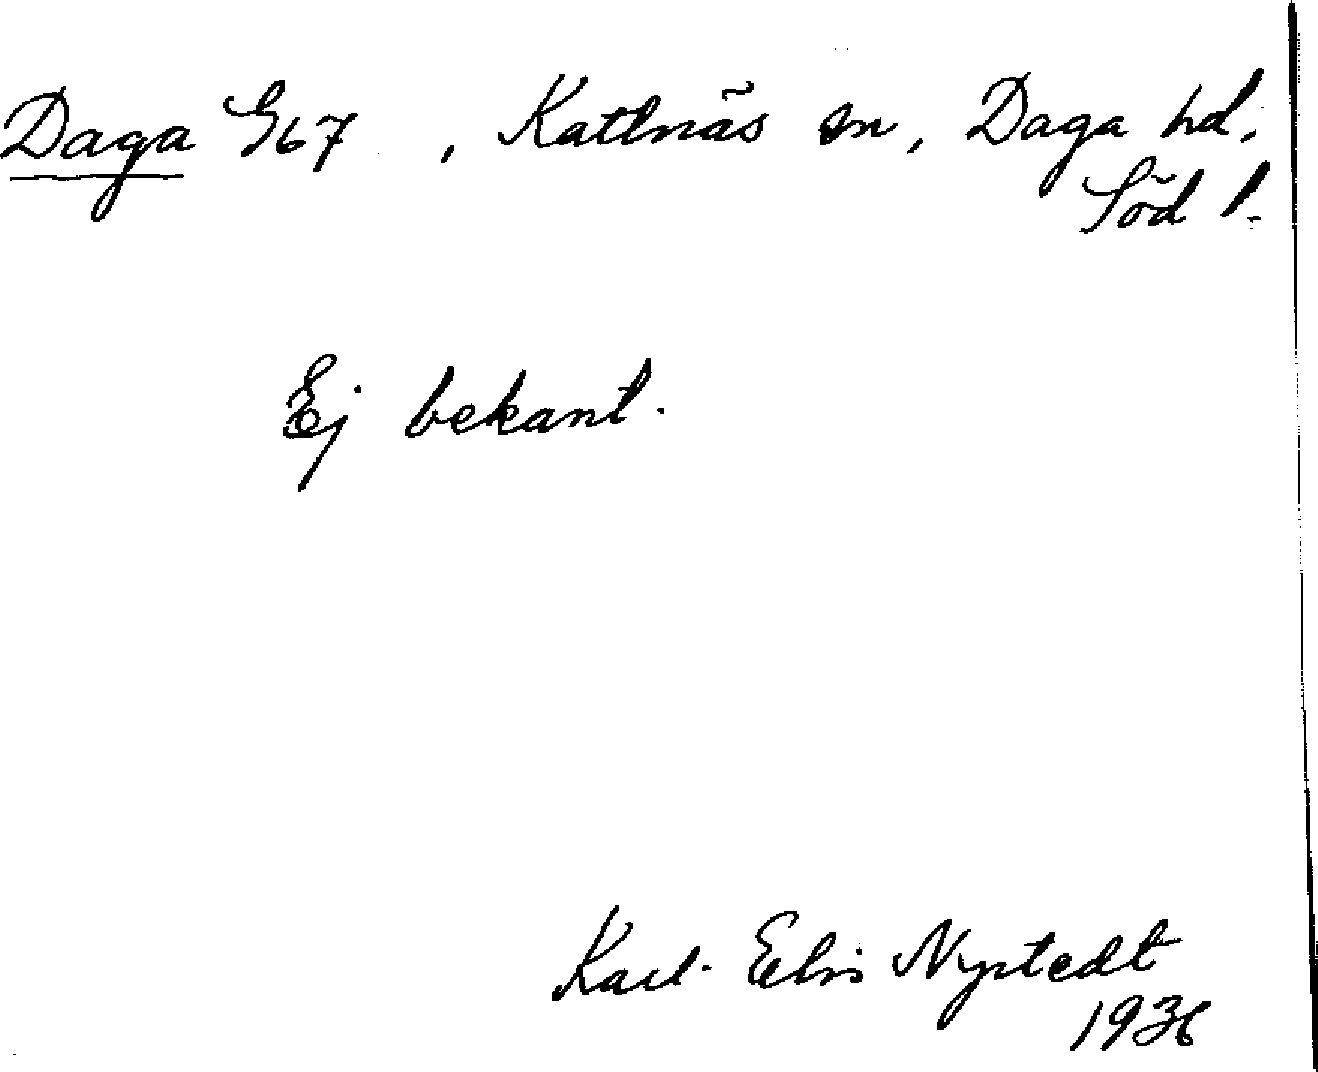 Daga G67, Kattnäs sn, Daga hd,
Söd l.
Ej bekant.
Karl-Elis Nystedt
1936